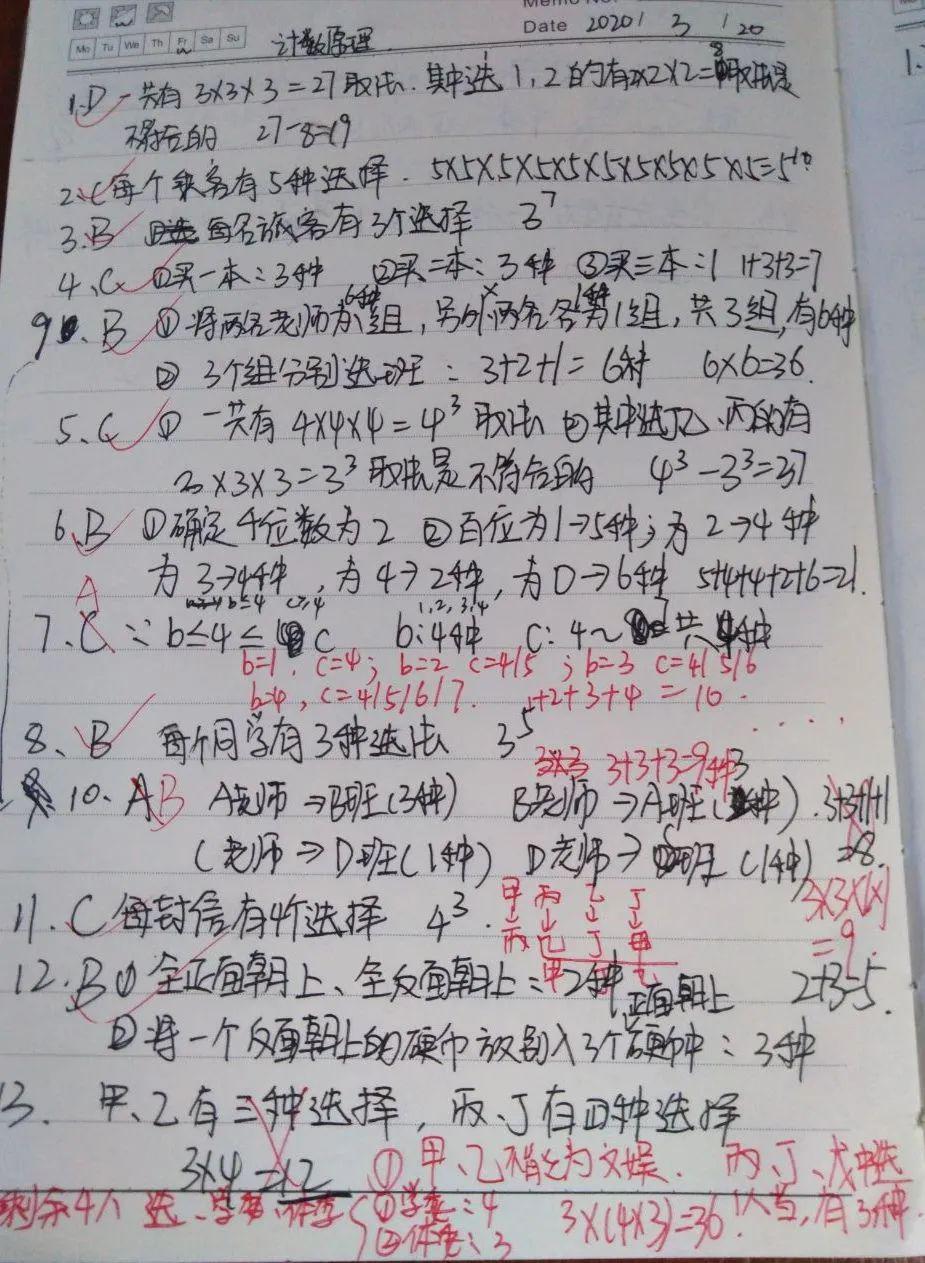 Memo No.
Mo Tu We Th Fr Sa Su
Date 2020 / 3 / 20
计数原理
1.D 一共有 3×3×3=27取法. 其中选1,2的有2×2×2=8取法是
不符合的 27-8=19
2.C 每个乘客有5种选择. 5×5×5×5×5×5×5×5×5×5=5¹⁰
3.B 每名旅客有3个选择 3⁷
4.C ①买一本:3种 ②买二本:3种 ③买三本:1 1+3+3=7
9.B ①将两名老师为1组,另外两名各为1组,共3组,有6种
②3个组分别选班:3+2+1=6种 6×6=36.
5.C ①一共有4×4×4=4³取法 ②其中选丁乙、丙的有
3×3×3=3³取法是不符合的 4³-3³=37
6.B ①确定千位数为2 ②百位为1→5种;为2→4种
为3→4种,为4→2种,为0→6种 5+4+4+2+6=21.
A
b≤4 c≥4 1,2,3,4
7.C ∵b≤4≤c b:4种 c:4~7 共4种
b=1 c=4; b=2 c=4/5; b=3 c=4/5/6
b=4, c=4/5/6/7. 1+2+3+4=10.
8、B 每个同学有3种选法 3⁵
3×3 3+3+3=9种
10.A B A老师⇒B班(3种) B老师→A班(3种). 3+3+1+1
C老师⇒D班(1种) D老师→班(1种) =8.
3×3×1×1
=9.
11.C 每封信有4个选择 4³.
甲 丙 乙 丁
↓ ↓ ↓ ↓
丙 乙 丁 甲
12.B ①全正面朝上、全反面朝上:2种 正面朝上 2+3=5.
②将一个反面朝上的硬币放到入3个硬币中:3种
13. 甲、乙有三种选择,丙、丁有四种选择
3×4=12
①甲、乙不能为文娱. 丙、丁、戊中选
1人当,有3种.
剩余4人 选、学委、体委 ①学委:4
②体委:3
3×(4×3)=36.